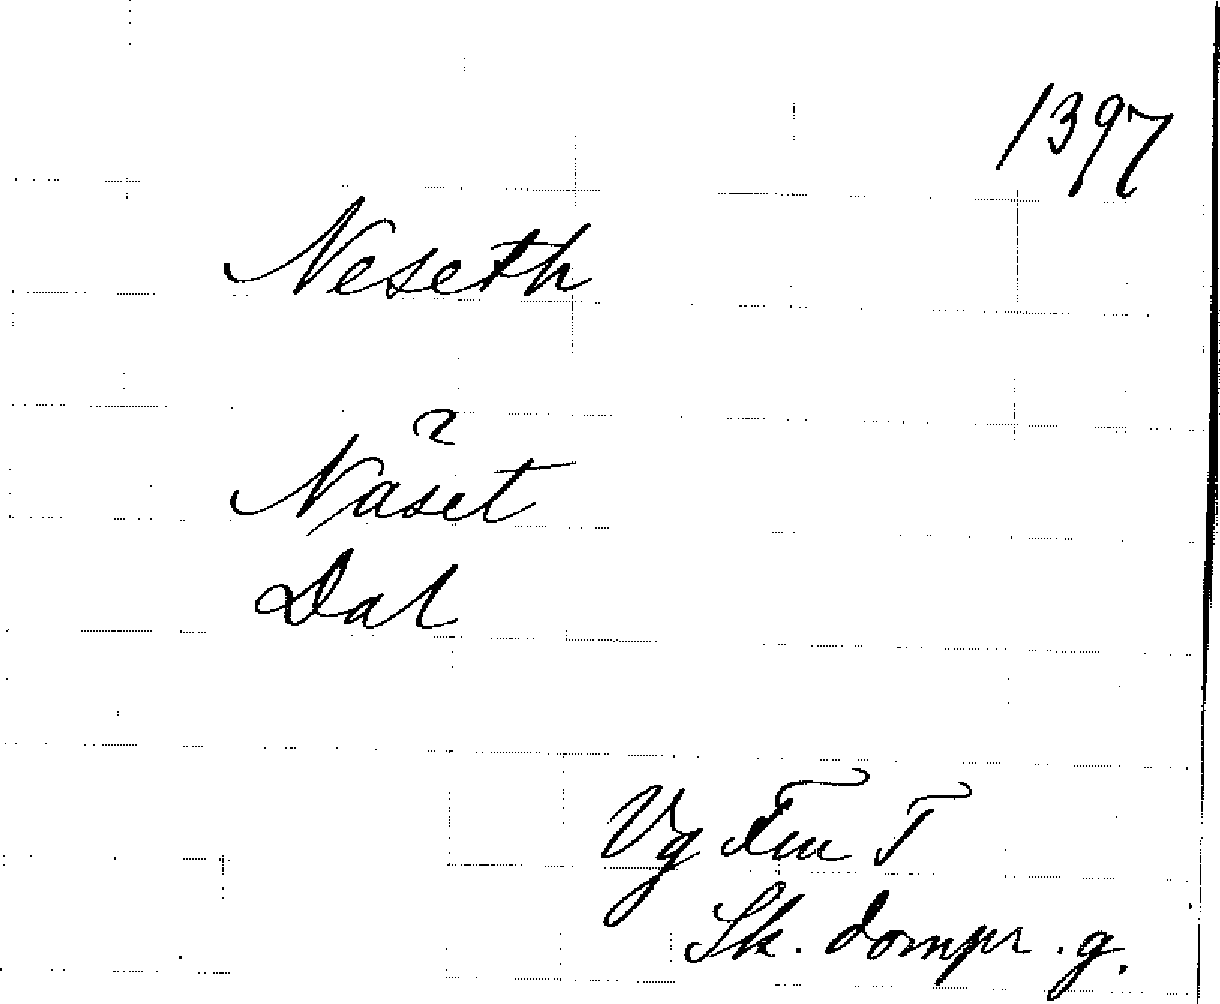 1397
Neseth
?
Näset
Dal
Vg Fm T
Sk. dompr. g.